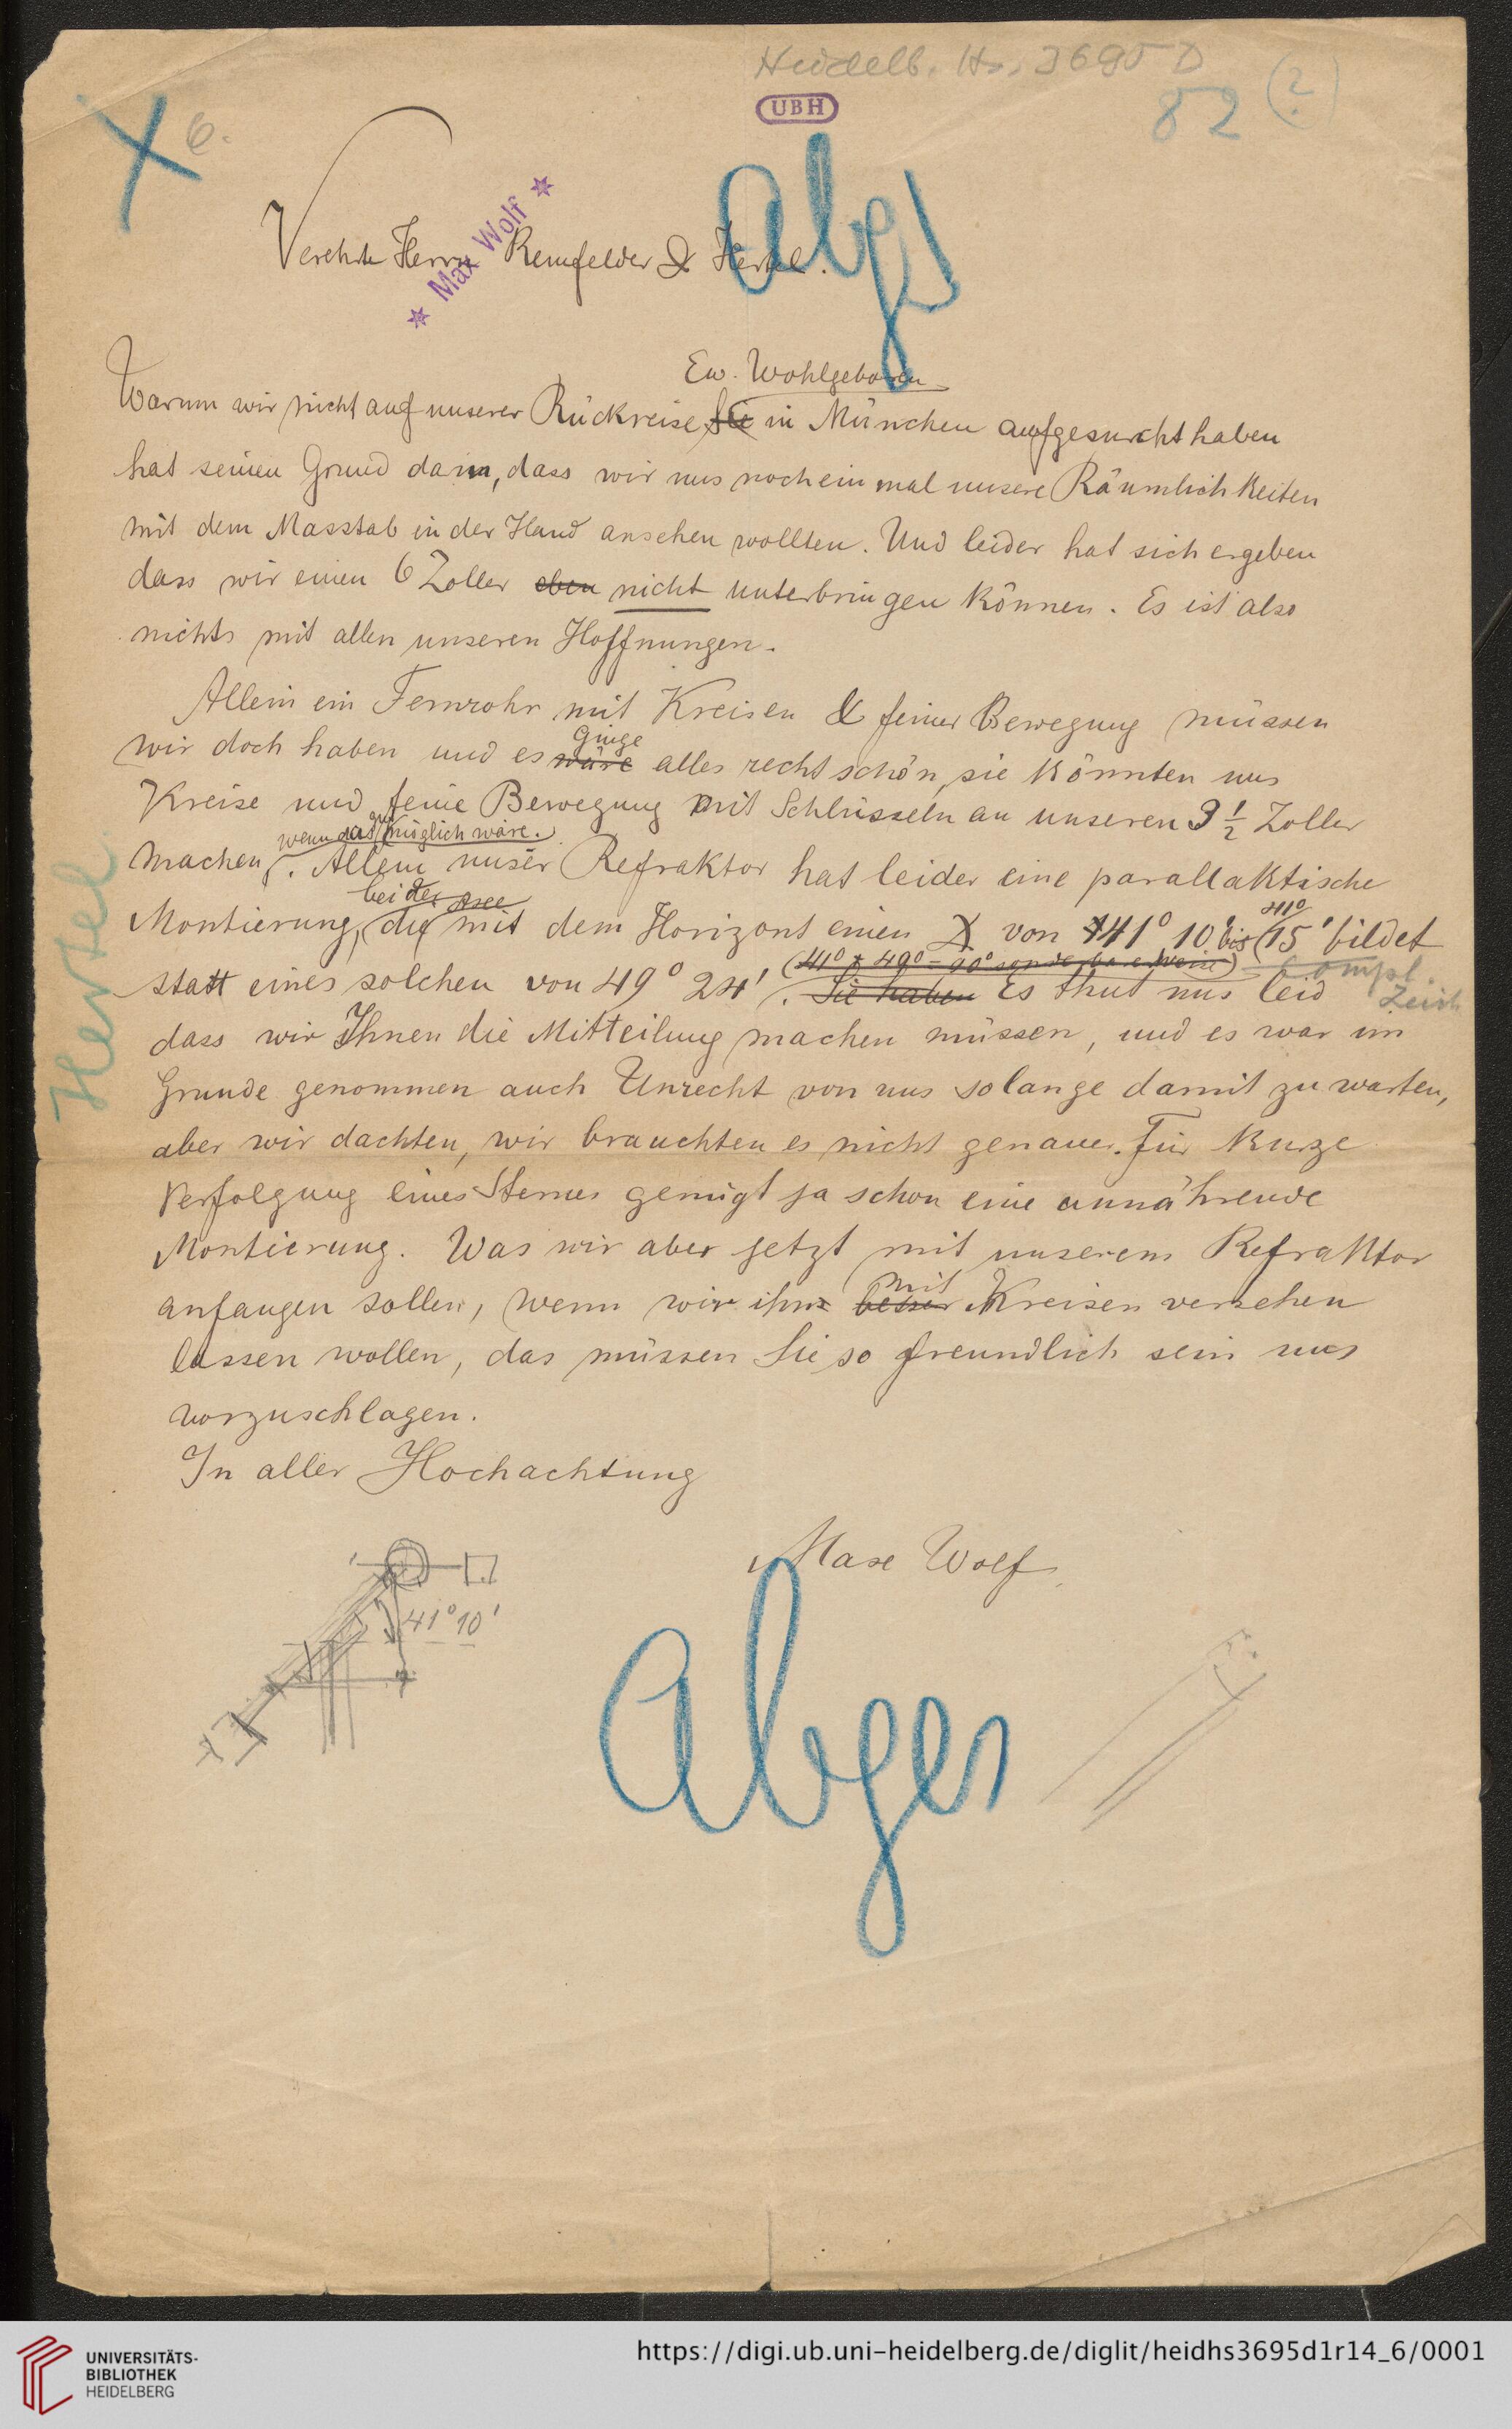 Heidelb. Hs. 3695 D
82 (?)
6.
UBH
Abges
* Max Wolf *
Verehrte Herrn Reinfelder & Hertel.
Ew. Wohlgeboren
Warum wir nicht auf unserer Rückreise Sie in München aufgesucht haben
hat seinen Grund darin, dass wir uns noch ein mal unsere Räumlichkeiten
mit dem Masstab in der Hand ansehen wollten. Und leider hat sich ergeben
dass wir einen 6 Zoller eben nicht unterbringen können. Es ist also
nichts mit allen unseren Hoffnungen.
Allein ein Fernrohr mit Kreisen & feiner Bewegung müssen
ginge
wir doch haben und es wäre alles recht schön, sie könnten uns
Kreise und feine Bewegung mit Schlüsseln an unseren 3 1/2 Zoller
wenn das möglich wäre.
machen. Allein unser Refraktor hat leider eine parallaktische
bei der
Montierung, die mit dem Horizont einen von 41° 10' bis 41° 15' bildet
(41° + 49° = 90° sonderbarer Weise)
statt eines solchen von 49° 24'. Sie haben Es thut uns leid
Compl.
Zeich
Hertel.
dass wir Ihnen die Mitteilung machen müssen, und es war im
Grunde genommen auch Unrecht von uns solange damit zu warten,
aber wir dachten, wir brauchten es nicht genauer. Für kurze
Verfolgung eines Sternes genügt ja schon eine annährende
Montierung. Was wir aber jetzt mit unserem Refraktor
mit
anfangen sollen, wenn wir ihn Kreisen versehen
lassen wollen, das müssen Sie so freundlich sein uns
vorzuschlagen.
In aller Hochachtung
Max Wolf
41° 10'
Abges
UNIVERSITÄTS-
BIBLIOTHEK
HEIDELBERG
https://digi.ub.uni-heidelberg.de/diglit/heidhs3695d1r14_6/0001